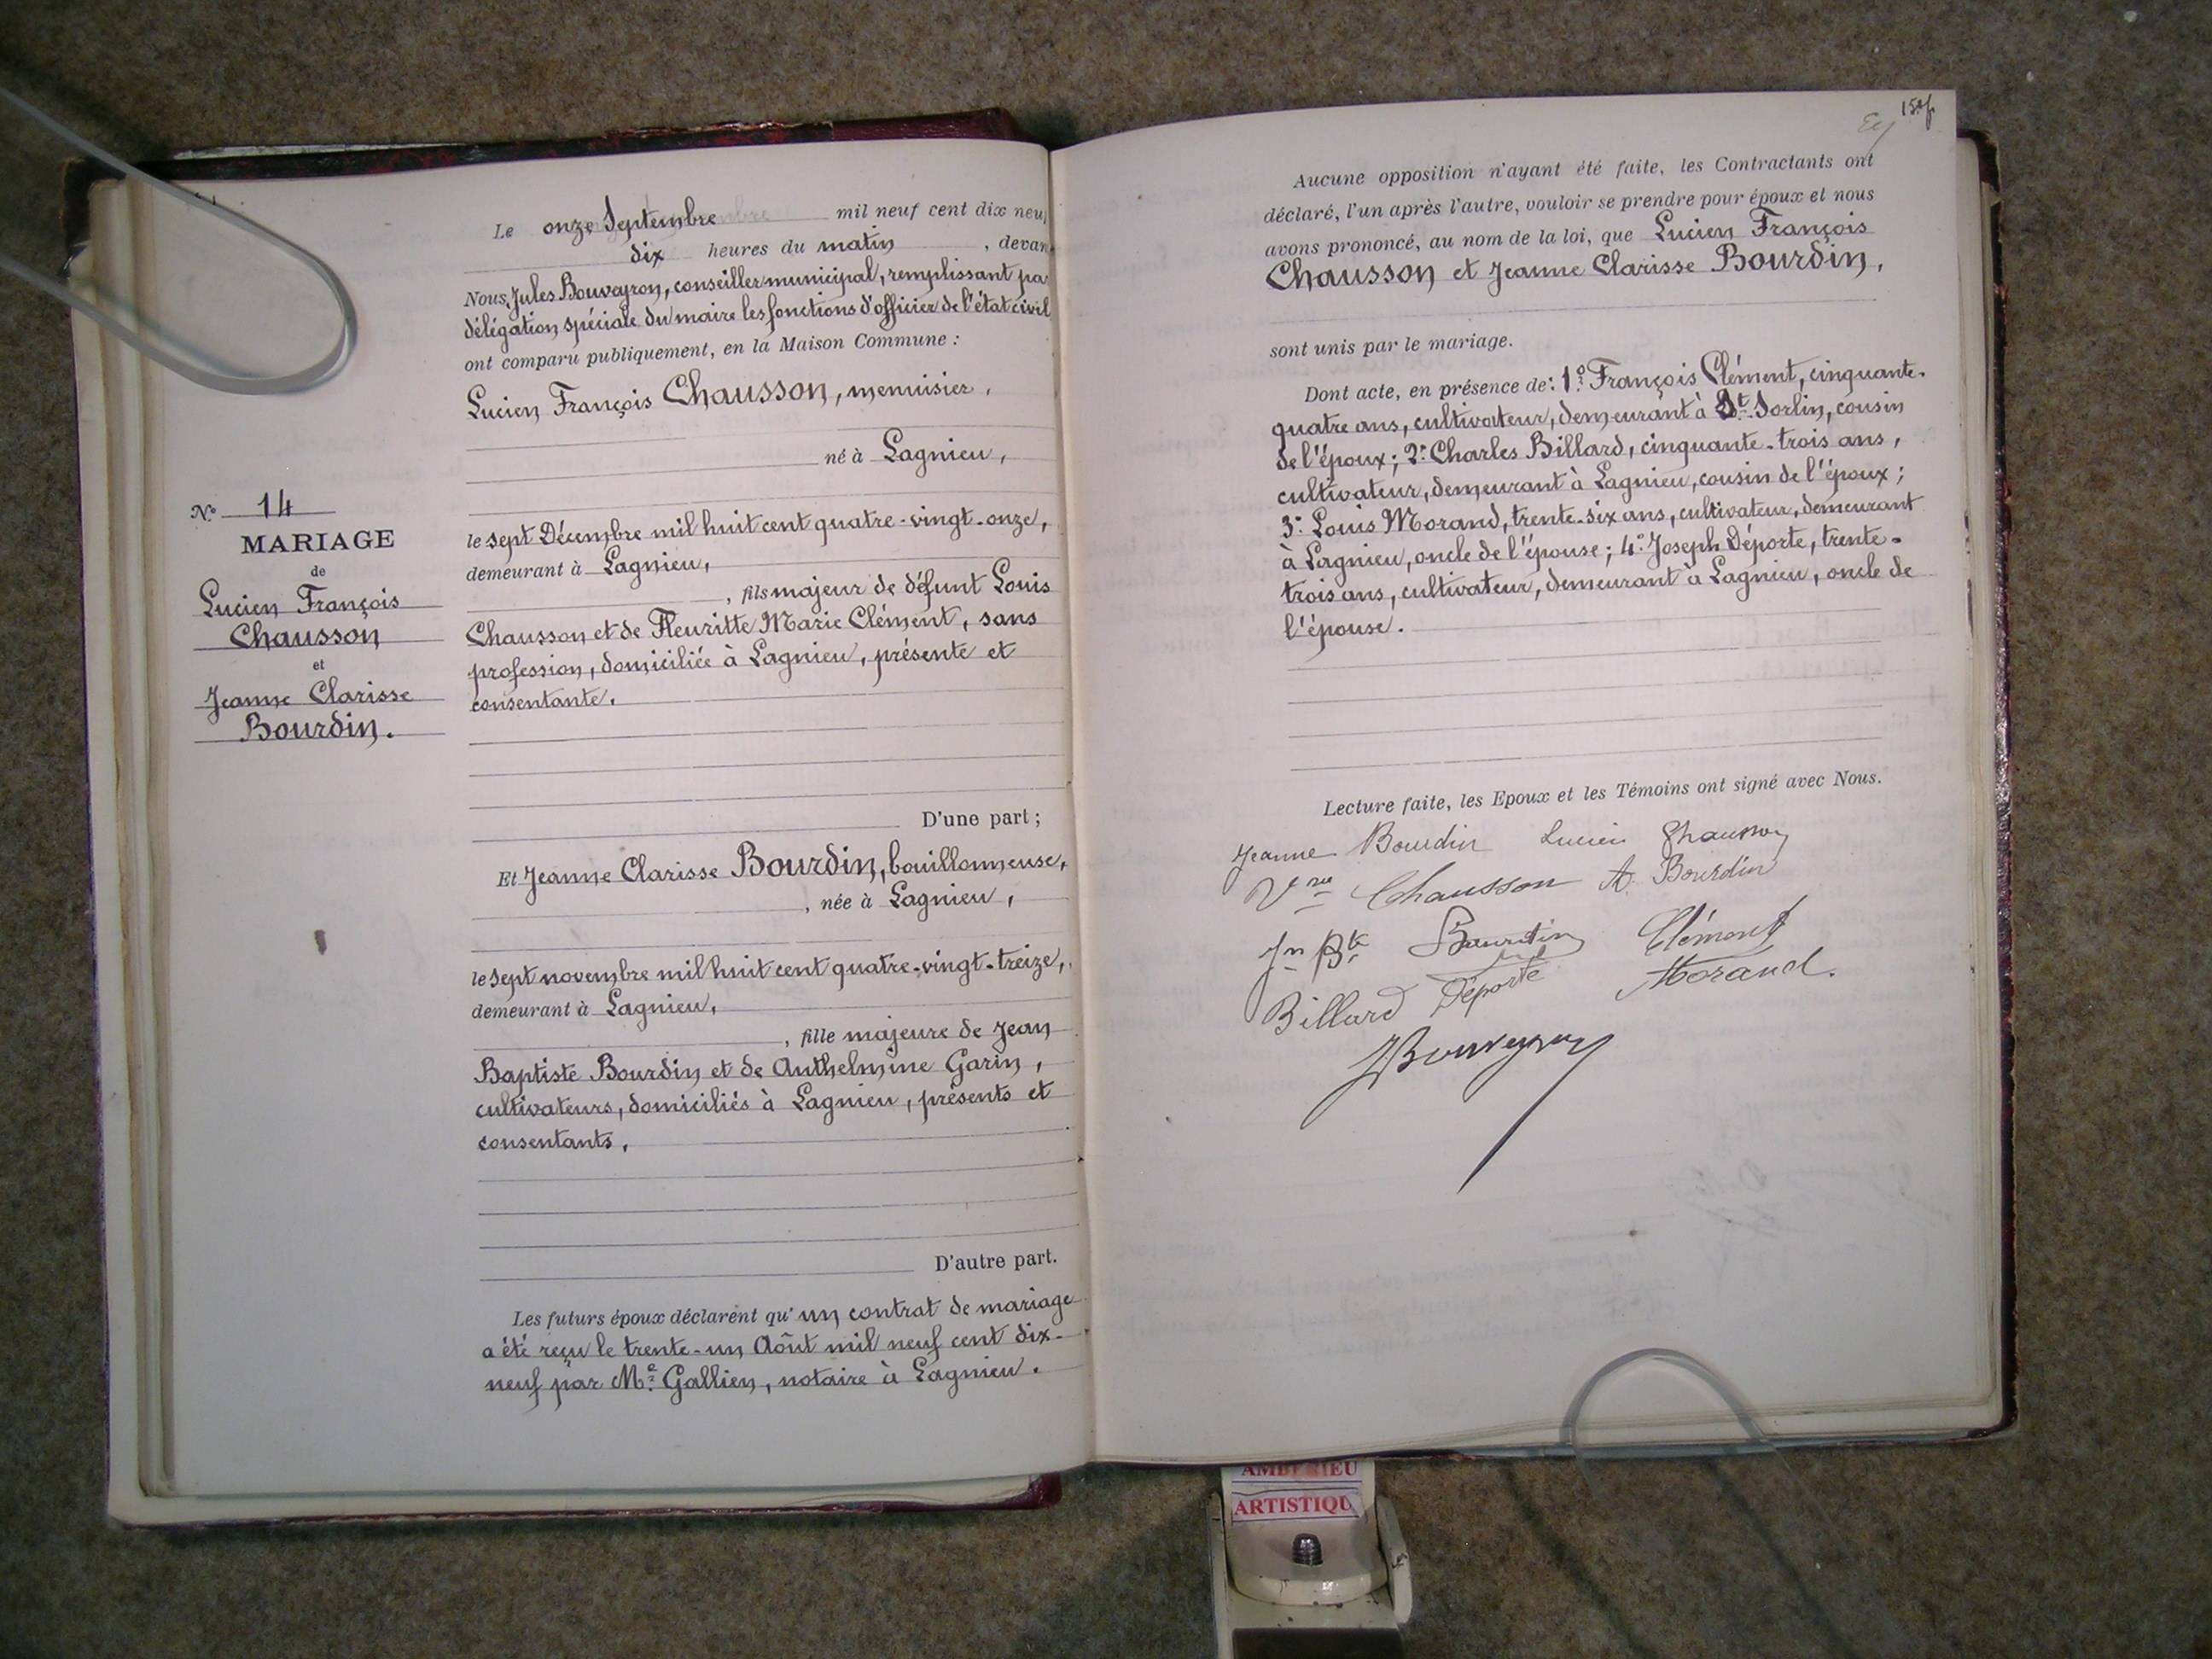 N° 14
MARIAGE
de
Lucien François
Chausson
et
Jeanne Clarisse
Bourdin.
Le onze Septembre mil neuf cent dix neu
dix heures du matin, devan
Nous, Jules Bouveyron, conseiller municipal, remplissant pa
délégation spéciale du maire les fonctions d'officier de l'état civil
ont comparu publiquement, en la Maison Commune :
Lucien François Chausson, menuisier,
né à Lagnieu,
le sept Décembre mil huit cent quatre-vingt-onze,
demeurant à Lagnieu,
, fils majeur de défunt Louis
Chausson et de Fleuritte Marie Clément, sans
profession, domiciliée à Lagnieu, présente et
consentante.
D'une part ;
Et Jeanne Clarisse Bourdin, bouillonneuse,
, née à Lagnieu,
le sept novembre mil huit cent quatre-vingt-treize,
demeurant à Lagnieu,
, fille majeure de Jean
Baptiste Bourdin et de Anthelmine Garin,
cultivateurs, domiciliés à Lagnieu, présents et
consentants,
D'autre part.
Les futurs époux déclarent qu'un contrat de mariage
a été reçu le trente-un Août mil neuf cent dix-
neuf par Me Gallien, notaire à Lagnieu.
Aucune opposition n'ayant été faite, les Contractants ont
déclaré, l'un après l'autre, vouloir se prendre pour époux et nous
avons prononcé, au nom de la loi, que Lucien François
Chausson et Jeanne Clarisse Bourdin,
sont unis par le mariage.
Dont acte, en présence de : 1° François Clément, cinquante-
quatre ans, cultivateur, demeurant à St-Sorlin, cousin
de l'époux ; 2° Charles Billard, cinquante-trois ans,
cultivateur, demeurant à Lagnieu, cousin de l'époux ;
3° Louis Morand, trente-six ans, cultivateur, demeurant
à Lagnieu, oncle de l'épouse ; 4° Joseph Déporte, trente-
trois ans, cultivateur, demeurant à Lagnieu, oncle de
l'épouse.
Lecture faite, les Epoux et les Témoins ont signé avec Nous.
Jeanne Bourdin Lucien Chausson
Vve Chausson A. Bourdin
Jn Bte Bourdin Clément
Billard Déporte Morand.
JBouveyron
AMBERIEU
ARTISTIQU